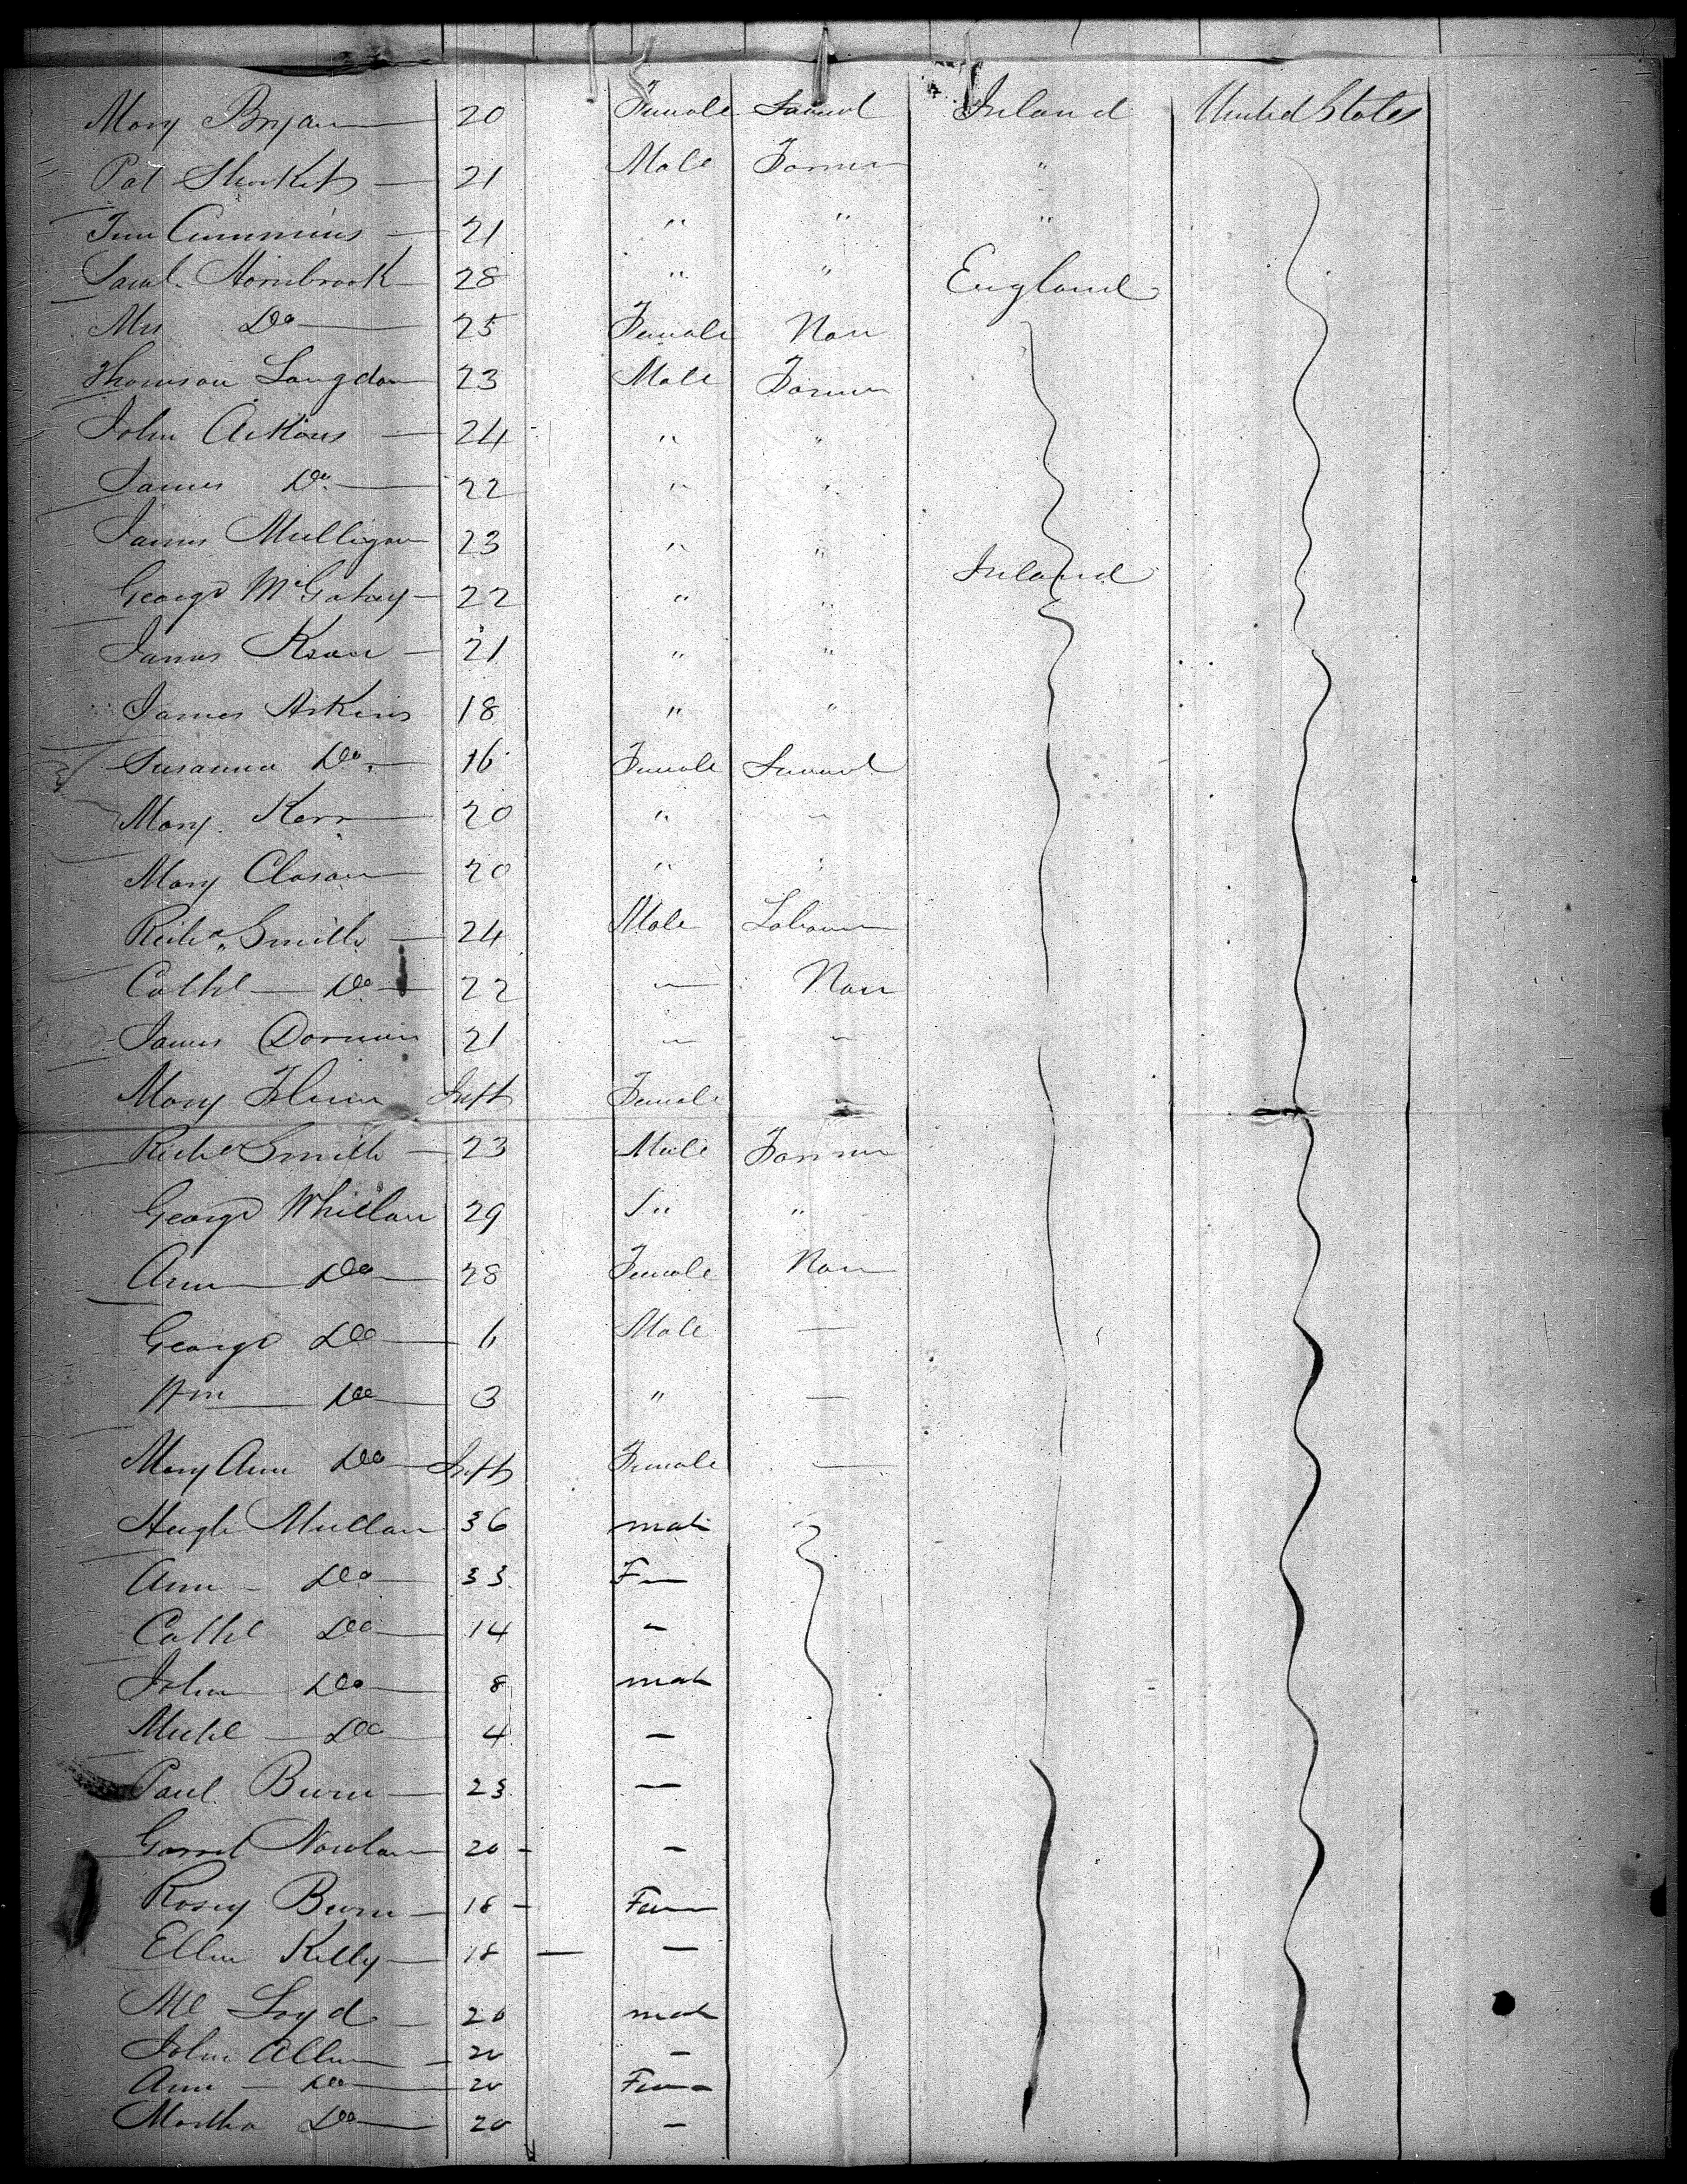 Mary Bryan 20 Female Servant Ireland United States
Pat 21 Male Farmer "
Tim Cummins 21 " " "
Saml. Hornbrook 28 " " England
Mrs Do 25 Female None
Thomson Langdon 23 Male Farmer
John Arkins 24 " "
James Do 22 " "
James Mulligan 23 " "
George 22 " " Ireland
James 21 " "
James Arkins 18 " "
Susanna Do. 16 Female Servant
Mary Kerr 20 " "
Mary 20 " "
Richd Smith 24 Male Labourer
Cathe Do 22 " None
James Dornin 21 " "
Mary Inft Female
Richd Smith 23 Male Farmer
George Whillan 29 " "
Ann Do 28 Female None
George Do 6 Male —
Wm Do 3 " —
Mary Ann Do Inft Female —
Hugh Mullan 36 male
Ann Do 33 F
Cathe Do 14 –
John Do 8 male
Michl Do 4 –
Paul Burn 23 –
Nowlan 20 –
Rosey Burn 18 Fem
Ellen Kelly 18 –
Loyd 20 male
John Allen 20 –
Ann Do 20 Fem
Martha Do 20 –